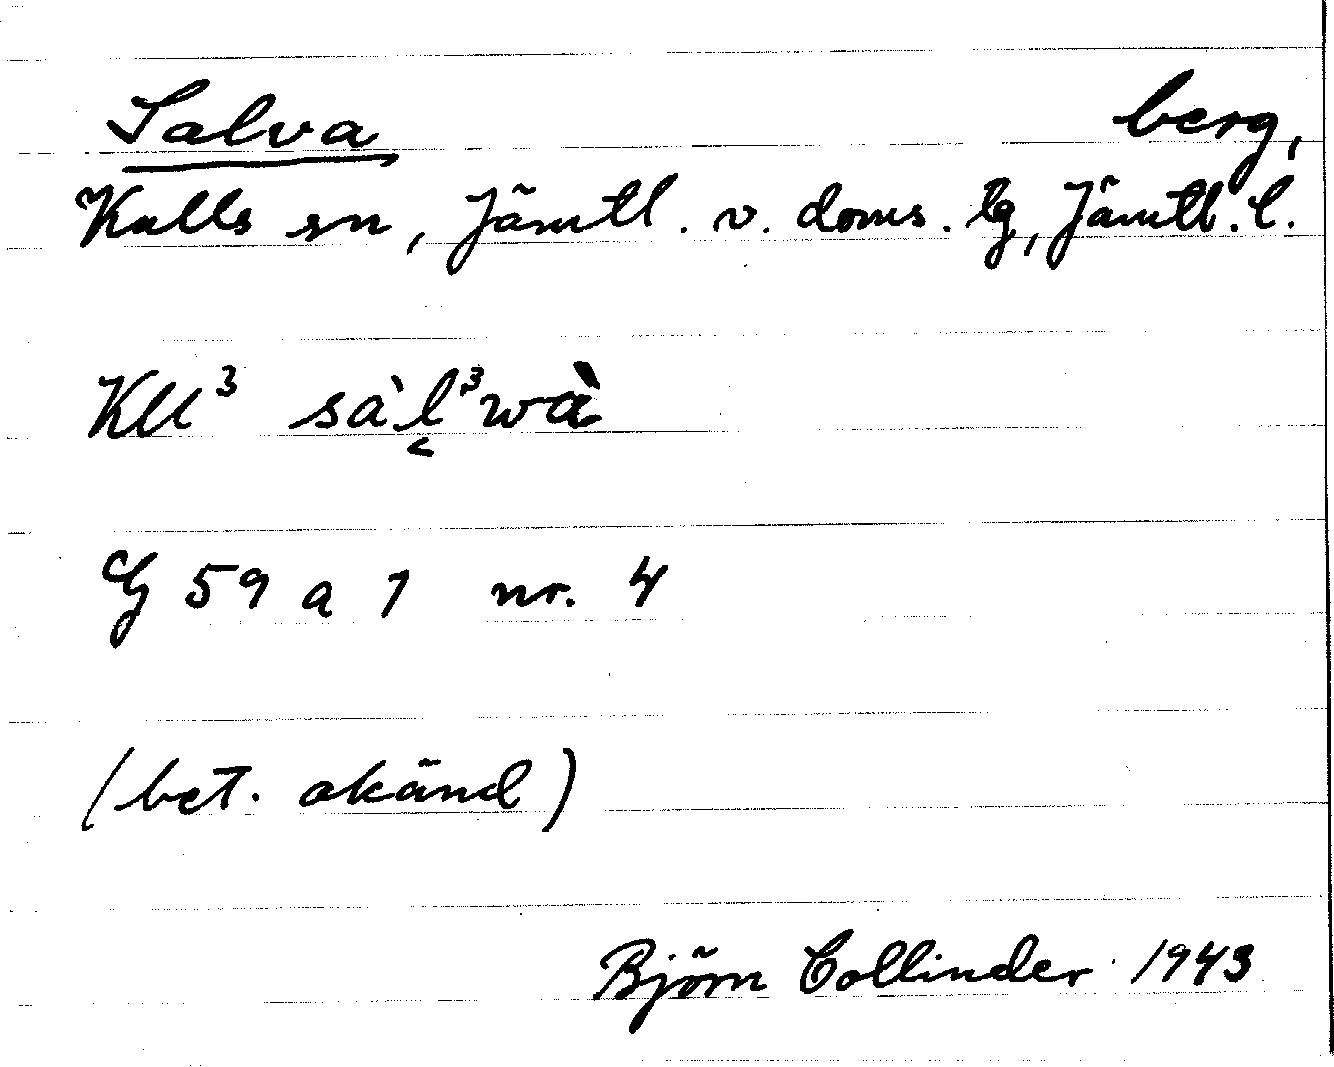 Salva berg,
Kalls sn, Jämtl. v. doms. lg, Jämtl. l.
Kll³ sàl̬³wà
G 59 a 1 nr. 4
(bet. okänd)
Björn Collinder 1943